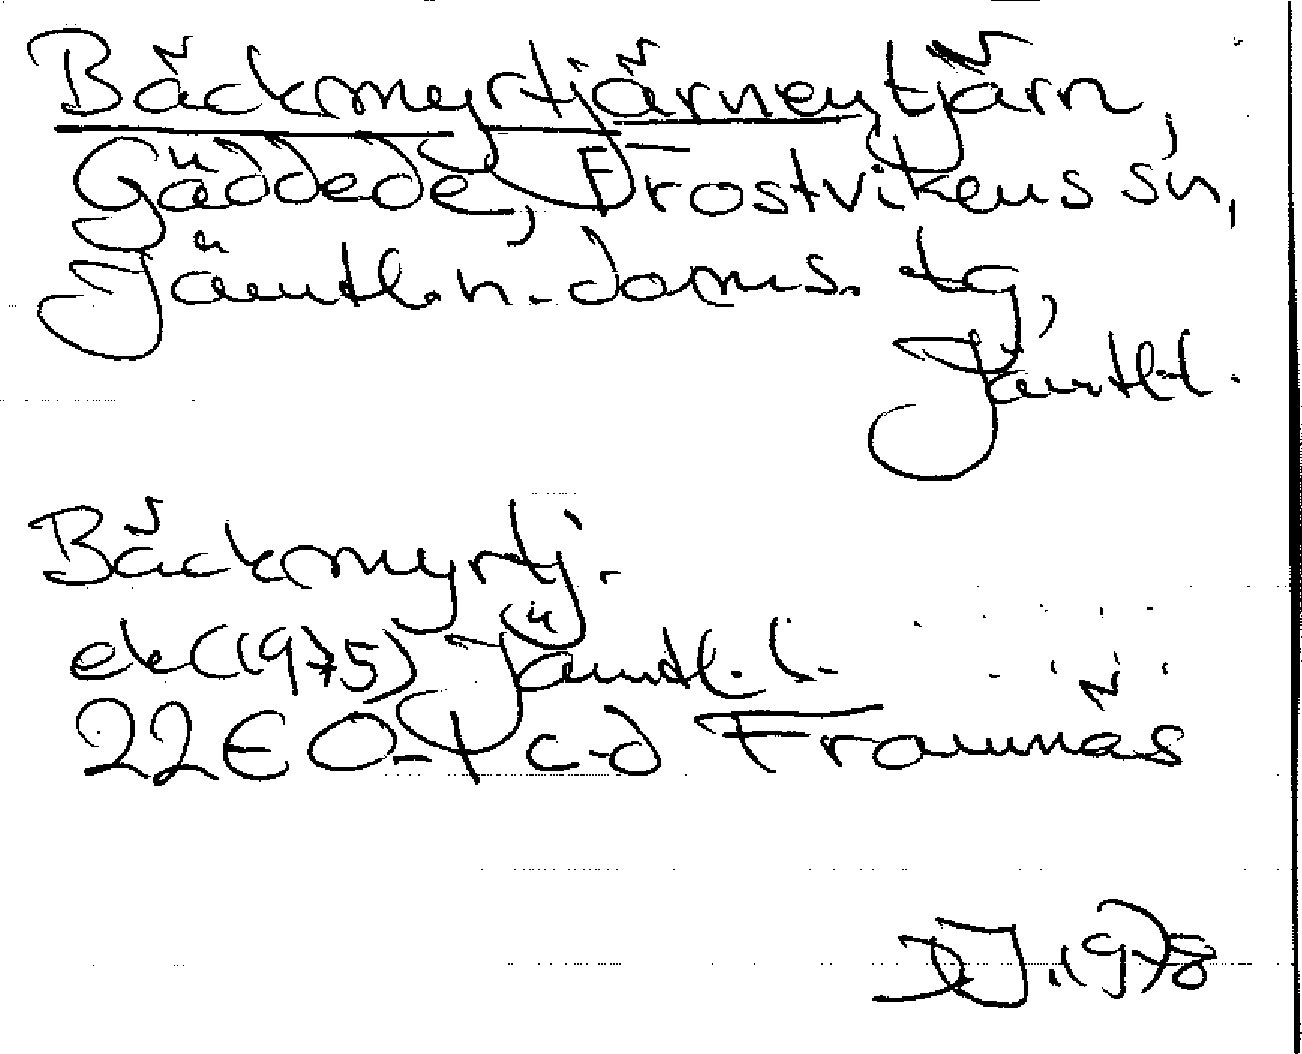 Bäckmyrtjärnen, tjärn,
Gäddede, Frostvikens sn,
Jämtl. n. doms. tg,
Jämtl. l.
Bäckmyrtj.
ek (1975) Jämtl. l.
22E 0-1 c-d Framnäs
1978